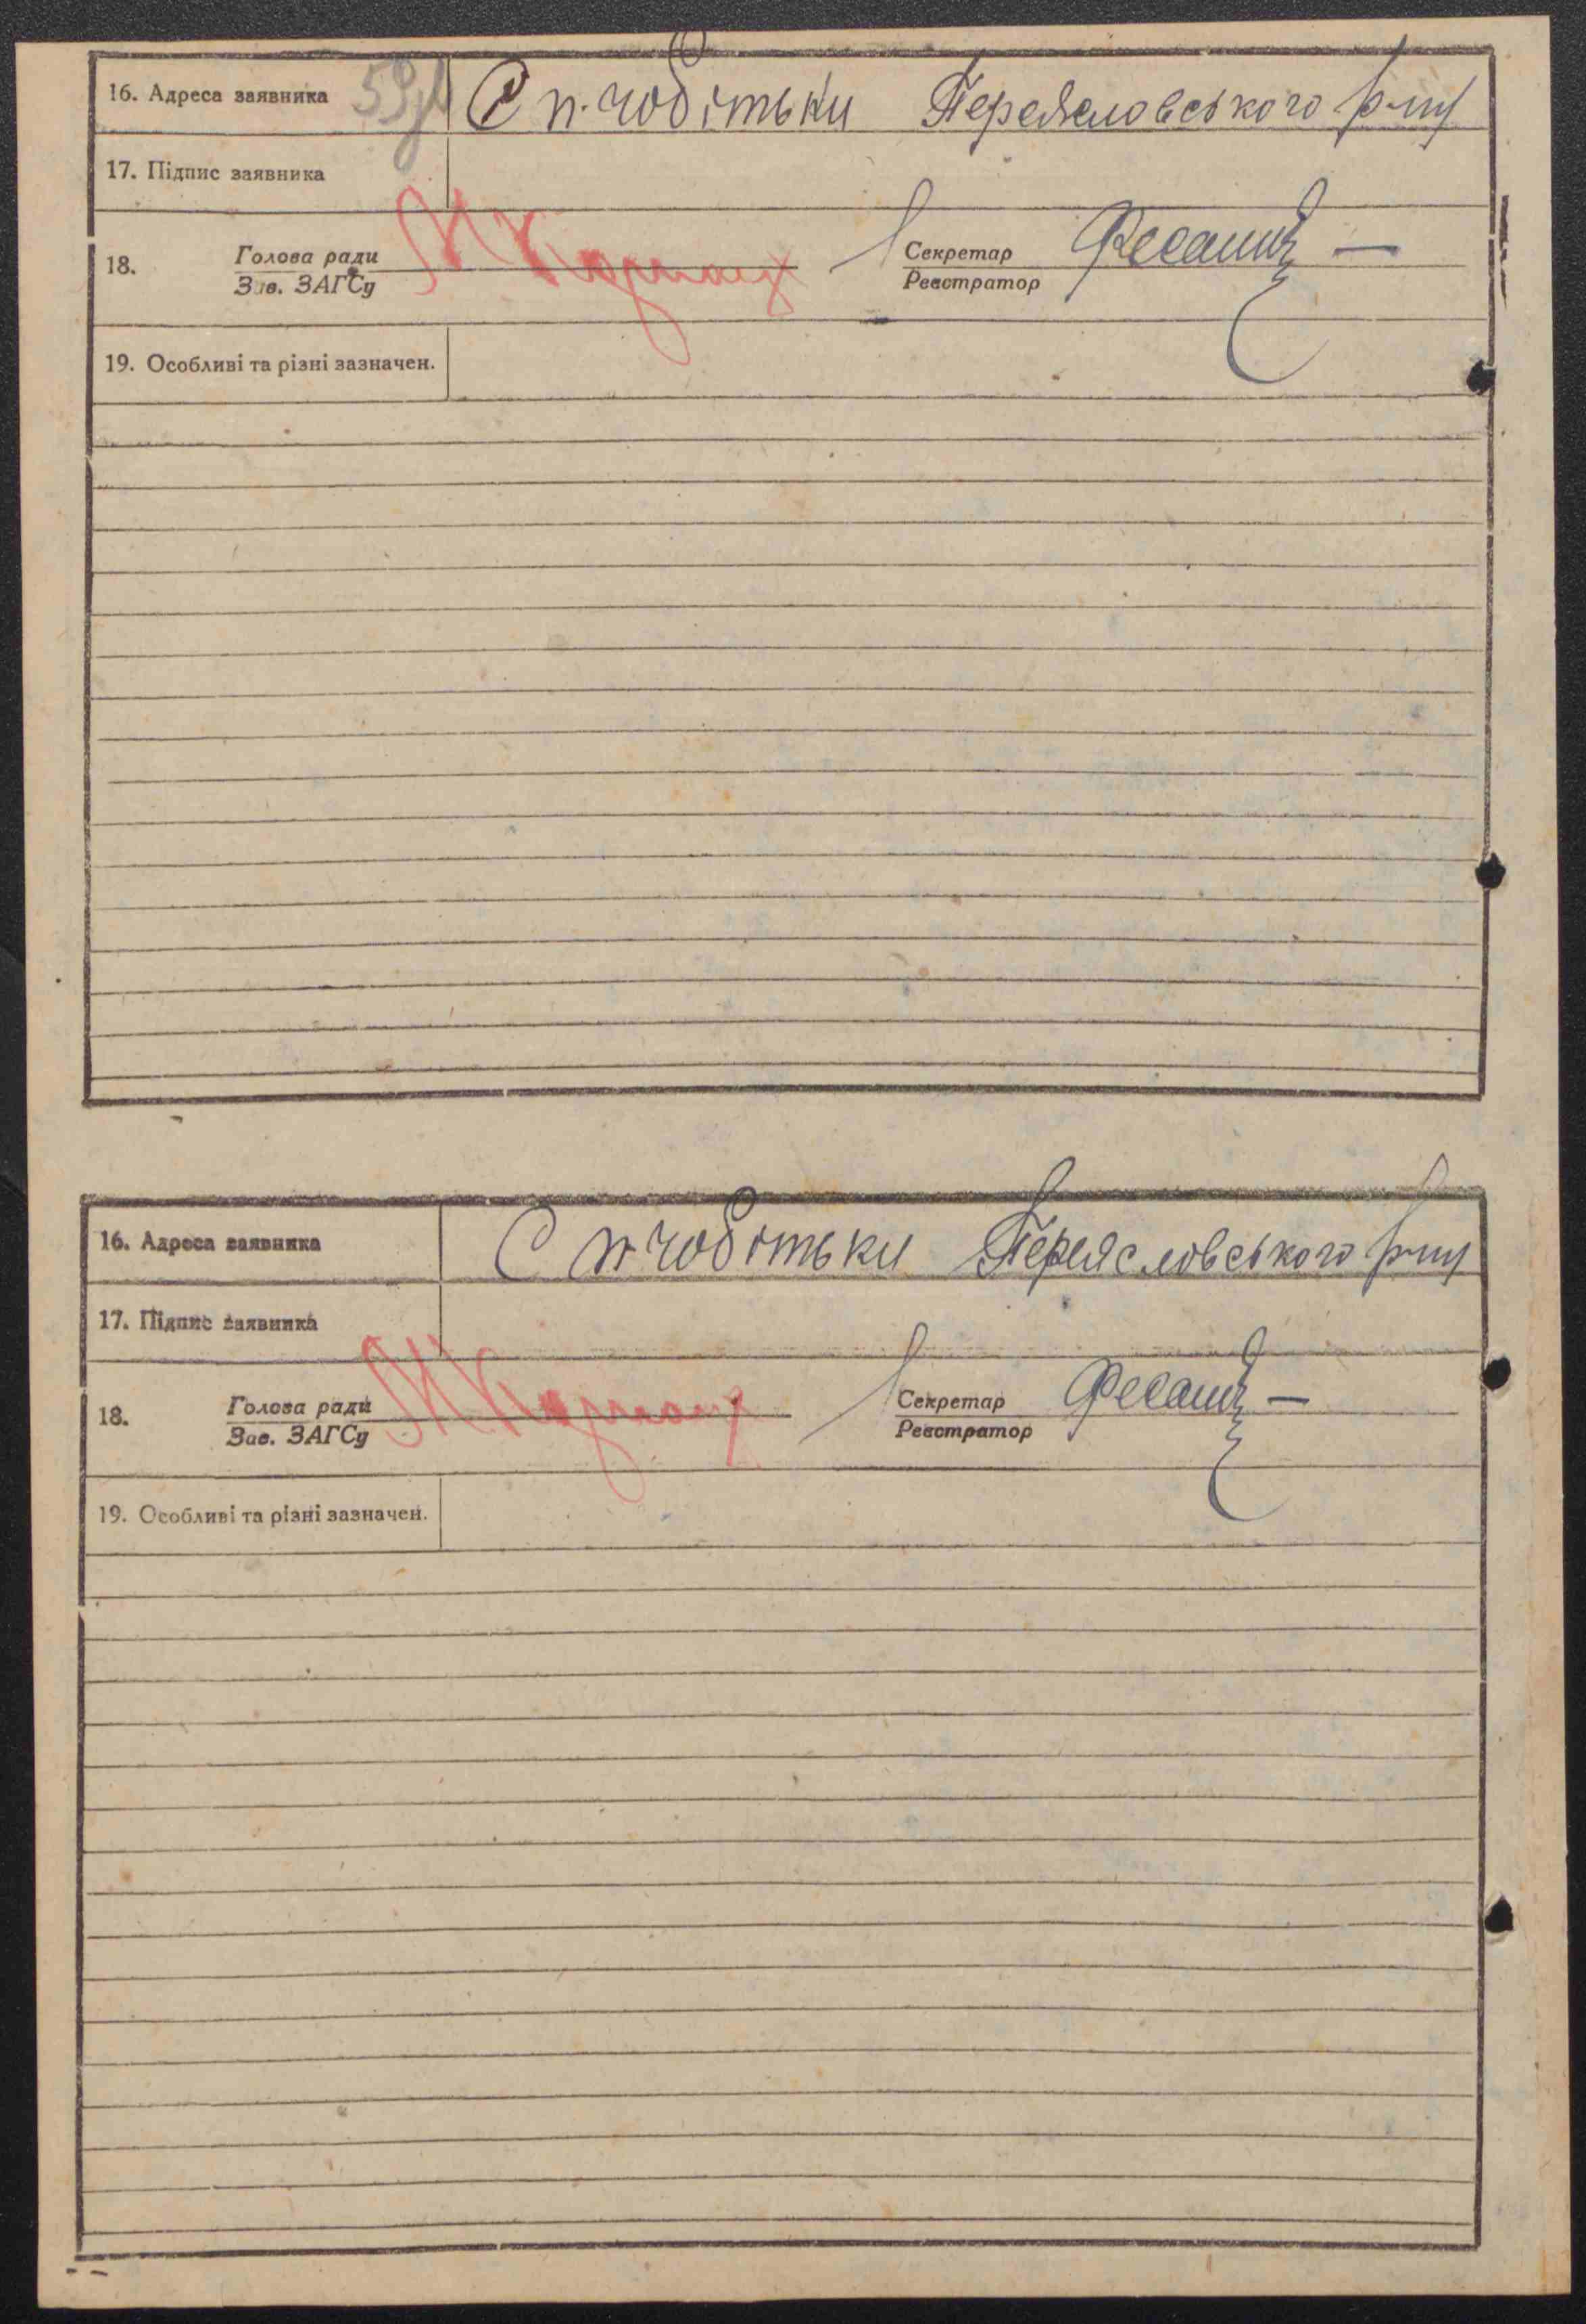 16. Адреса заявника С п-чобітьки Переясловського р-ну
17. Підпис заявника
18. Голова ради Секретар
Зав. ЗАГСу Реєстратор
19. Особливі та різні зазначен.
16. Адреса заявника С п-чобітьки Переясловського р-ну
17. Підпис заявника
18. Голова ради Секретар
Зав. ЗАГСу Реєстратор
19. Особливі та різні зазначен.